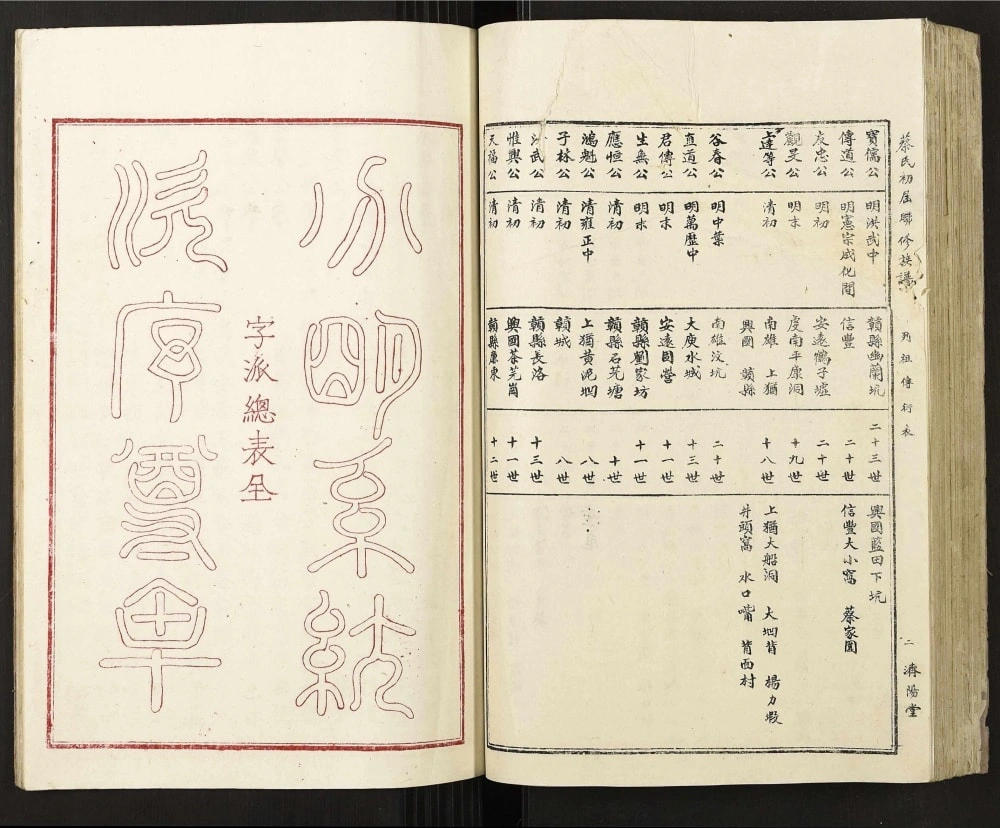 蔡氏初屆聯修族譜 列祖傳衍表 二 濟陽堂
寶儒公 明洪武中 贛縣幽蘭坑 二十三世 興國藍田下坑
傳道公 明憲宗成化間 信豐 二十世 信豐大小窩 蔡家圍
友忠公 明初 安遠鶴子墟 二十世
觀旻公 明末 虔南平康洞 十九世
達等公 清初 南雄 上猶 十八世 上猶大船洞 大坳背 楊力嘏
興國 贛縣 井頭窩 水口嘴 背西村
谷春公 明中葉 南雄汶坑 二十世
直道公 明萬歷中 大庾水城 十三世
君傳公 明末 安遠固營 十一世
生無公 明末 贛縣劉家坊 十一世
應恒公 清初 贛縣石芫塘 十世
鴻魁公 清雍正中 上猶黄泥坳 八世
子林公 清初 贛城 八世
武公 清初 贛縣長洛 十三世
惟興公 清初 興國茶芫崗 十一世
天福公 清初 贛縣 東 十二世
分明系統
字派總表全
派序尊卑